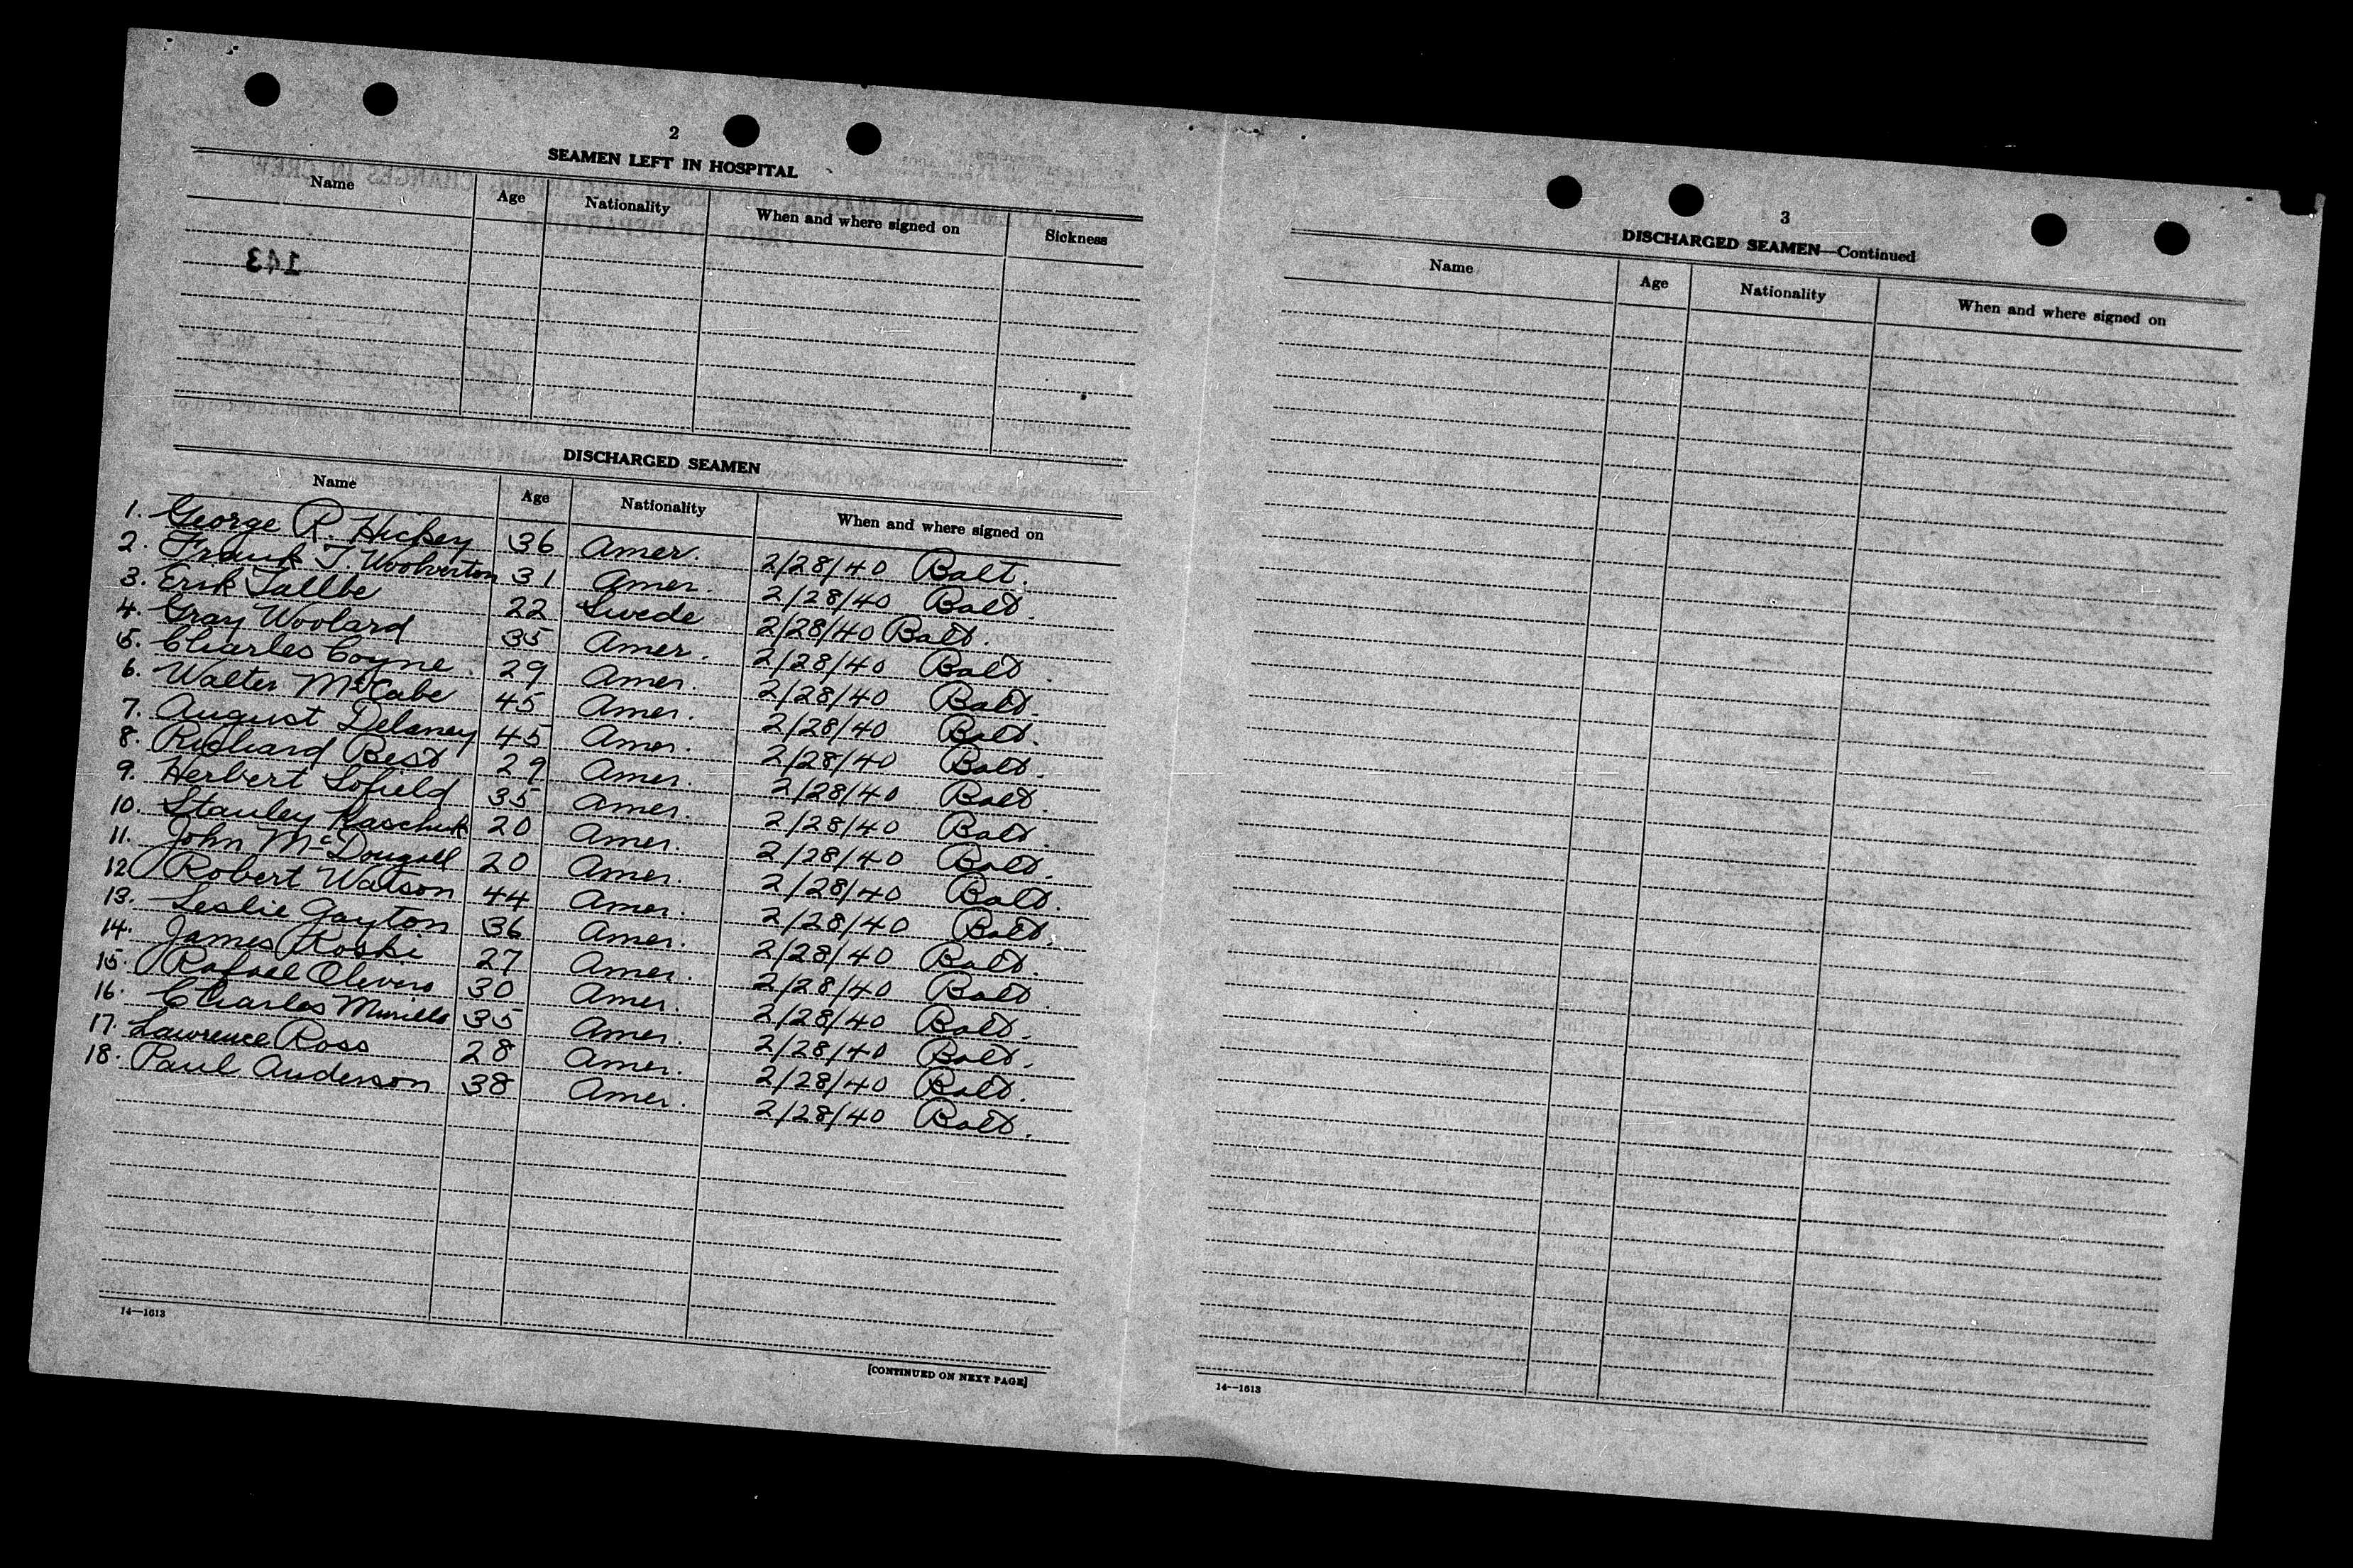 2
SEAMEN LEFT IN HOSPITAL
Name Age Nationality When and where signed on Sickness
143
DISCHARGED SEAMEN
Name Age Nationality When and where signed on
1. George R. Hickey 36 Amer. 2/28/40 Balt.
2. Frank T. Woolverton 31 Amer. 2/28/40 Balt.
3. Erik Tallbe 22 Swede 2/28/40 Balt.
4. Gray Woolard 35 Amer. 2/28/40 Balt.
5. Charles Coyne 29 Amer. 2/28/40 Balt.
6. Walter McCabe 45 Amer. 2/28/40 Balt.
7. August Delaney 45 Amer. 2/28/40 Balt.
8. Richard Best 29 Amer. 2/28/40 Balt.
9. Herbert Sofield 35 Amer. 2/28/40 Balt.
10. Stanley Kaschuk 20 Amer. 2/28/40 Balt.
11. John McDougall 20 Amer. 2/28/40 Balt.
12 Robert Watson 44 Amer. 2/28/40 Balt.
13. Leslie Gayton 36 Amer. 2/28/40 Balt.
14. James Roski 27 Amer. 2/28/40 Balt.
15. Rafael Olivero 30 Amer. 2/28/40 Balt.
16. Charles 35 Amer. 2/28/40 Balt.
17. Lawrence Ross 28 Amer. 2/28/40 Balt.
18. Paul Anderson 38 Amer. 2/28/40 Balt.
14—1613
[CONTINUED ON NEXT PAGE]
3
DISCHARGED SEAMEN—Continued
Name Age Nationality When and where signed on
14—1613